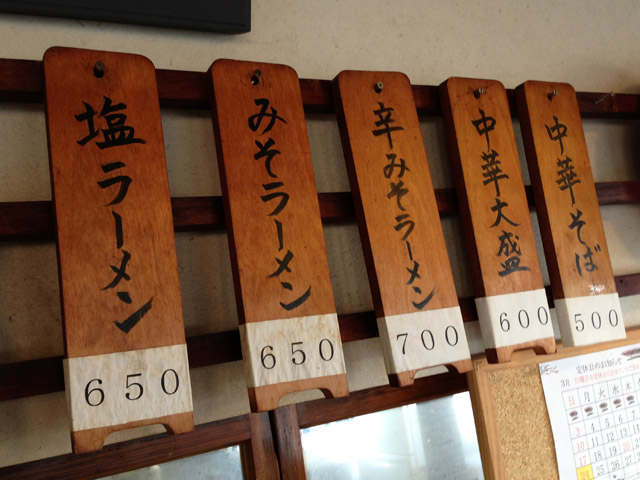 塩ラーメン
650
みそラーメン
650
辛みそラーメン
700
中華大盛
600
中華そば
500
定休日のお知らせ
3月
日 月 火 水 木